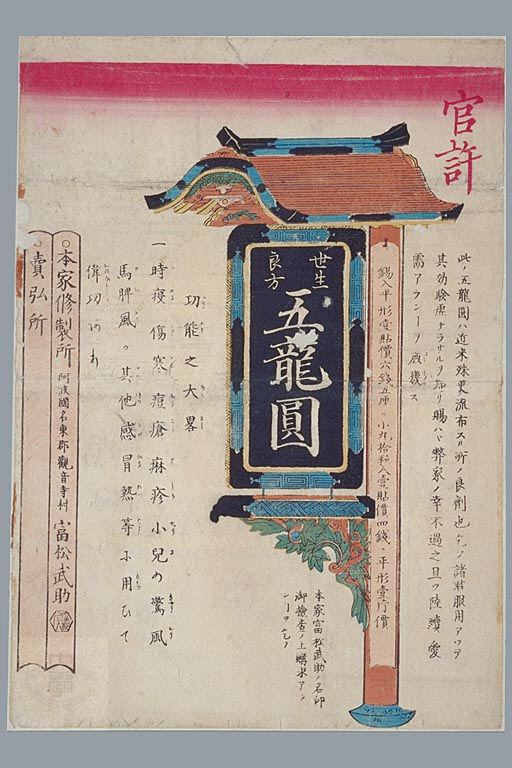 官許
此ノ五龍圓ハ近来殊更流布スル所ノ良劑也乞フ諸君服用アツテ
其効驗虚ナラサルヲ知リ賜ハヾ弊家ノ幸不過之且ツ陸續愛
需アランヿヲ庶幾ス
錫入平形壹貼價六錢五厘・小丸拾粒入壹貼價四錢・平形壹斤價
世生
良方
五龍圓
本家富松武助ノ名印
御檢査ノ上購求アラ
ンヿヲ乞フ
功能之大畧
一時疫傷寒痘瘡麻疹小兒の驚風
馬脾風。其他感冒熱等に用ひて
偉功あり
本家修製所 阿波國名東郡觀音寺村 富松武助
賣弘所